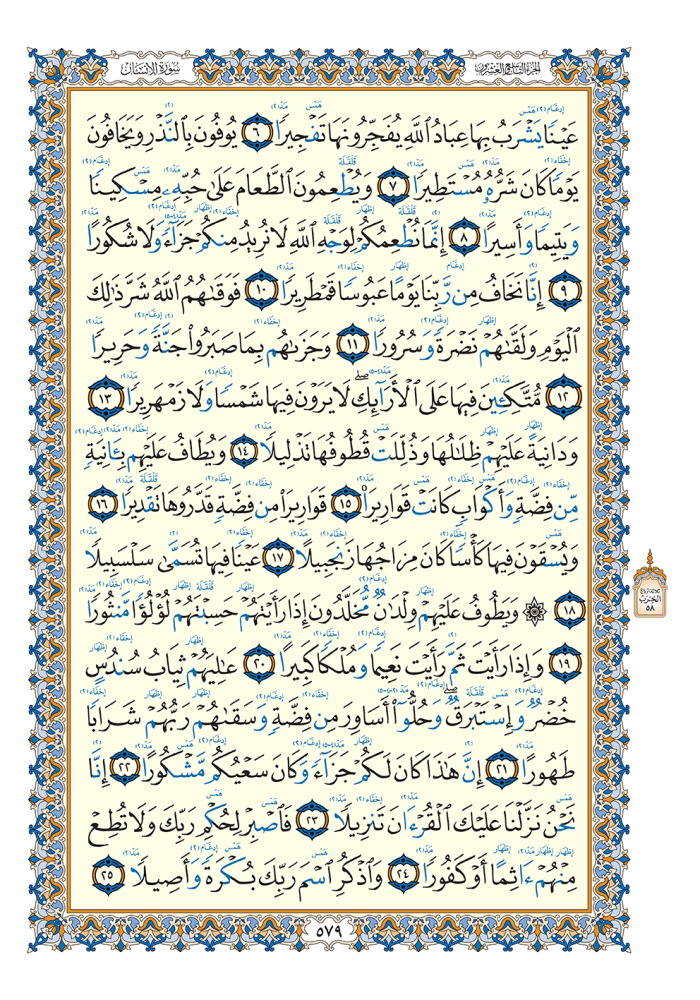 سورة الإنسان
الجزء التاسع والعشرون
عَيْنًا يَشْرَبُ بِهَا عِبَادُ ٱللَّهِ يُفَجِّرُونَهَا تَفْجِيرًا ٦ يُوفُونَ بِٱلنَّذْرِ وَيَخَافُونَ
يَوْمًا كَانَ شَرُّهُۥ مُسْتَطِيرًا ٧ وَيُطْعِمُونَ ٱلطَّعَامَ عَلَىٰ حُبِّهِۦ مِسْكِينًا
وَيَتِيمًا وَأَسِيرًا ٨ إِنَّمَا نُطْعِمُكُمْ لِوَجْهِ ٱللَّهِ لَا نُرِيدُ مِنكُمْ جَزَآءً وَلَا شُكُورًا
٩ إِنَّا نَخَافُ مِن رَّبِّنَا يَوْمًا عَبُوسًا قَمْطَرِيرًا ١٠ فَوَقَىٰهُمُ ٱللَّهُ شَرَّ ذَٰلِكَ
ٱلْيَوْمِ وَلَقَّىٰهُمْ نَضْرَةً وَسُرُورًا ١١ وَجَزَىٰهُم بِمَا صَبَرُوا۟ جَنَّةً وَحَرِيرًا
١٢ مُّتَّكِـِٔينَ فِيهَا عَلَى ٱلْأَرَآئِكِ ۖ لَا يَرَوْنَ فِيهَا شَمْسًا وَلَا زَمْهَرِيرًا ١٣
وَدَانِيَةً عَلَيْهِمْ ظِلَٰلُهَا وَذُلِّلَتْ قُطُوفُهَا تَذْلِيلًا ١٤ وَيُطَافُ عَلَيْهِم بِـَٔانِيَةٍ
مِّن فِضَّةٍ وَأَكْوَابٍ كَانَتْ قَوَارِيرَا۠ ١٥ قَوَارِيرَا۟ مِن فِضَّةٍ قَدَّرُوهَا تَقْدِيرًا ١٦
وَيُسْقَوْنَ فِيهَا كَأْسًا كَانَ مِزَاجُهَا زَنجَبِيلًا ١٧ عَيْنًا فِيهَا تُسَمَّىٰ سَلْسَبِيلًا
١٨ ۞ وَيَطُوفُ عَلَيْهِمْ وِلْدَٰنٌ مُّخَلَّدُونَ إِذَا رَأَيْتَهُمْ حَسِبْتَهُمْ لُؤْلُؤًا مَّنثُورًا
١٩ وَإِذَا رَأَيْتَ ثَمَّ رَأَيْتَ نَعِيمًا وَمُلْكًا كَبِيرًا ٢٠ عَٰلِيَهُمْ ثِيَابُ سُندُسٍ
خُضْرٌ وَإِسْتَبْرَقٌ ۖ وَحُلُّوٓا۟ أَسَاوِرَ مِن فِضَّةٍ وَسَقَىٰهُمْ رَبُّهُمْ شَرَابًا
طَهُورًا ٢١ إِنَّ هَٰذَا كَانَ لَكُمْ جَزَآءً وَكَانَ سَعْيُكُم مَّشْكُورًا ٢٢ إِنَّا
نَحْنُ نَزَّلْنَا عَلَيْكَ ٱلْقُرْءَانَ تَنزِيلًا ٢٣ فَٱصْبِرْ لِحُكْمِ رَبِّكَ وَلَا تُطِعْ
مِنْهُمْ ءَاثِمًا أَوْ كَفُورًا ٢٤ وَٱذْكُرِ ٱسْمَ رَبِّكَ بُكْرَةً وَأَصِيلًا ٢٥
٥٧٩
الحزب
٥٨